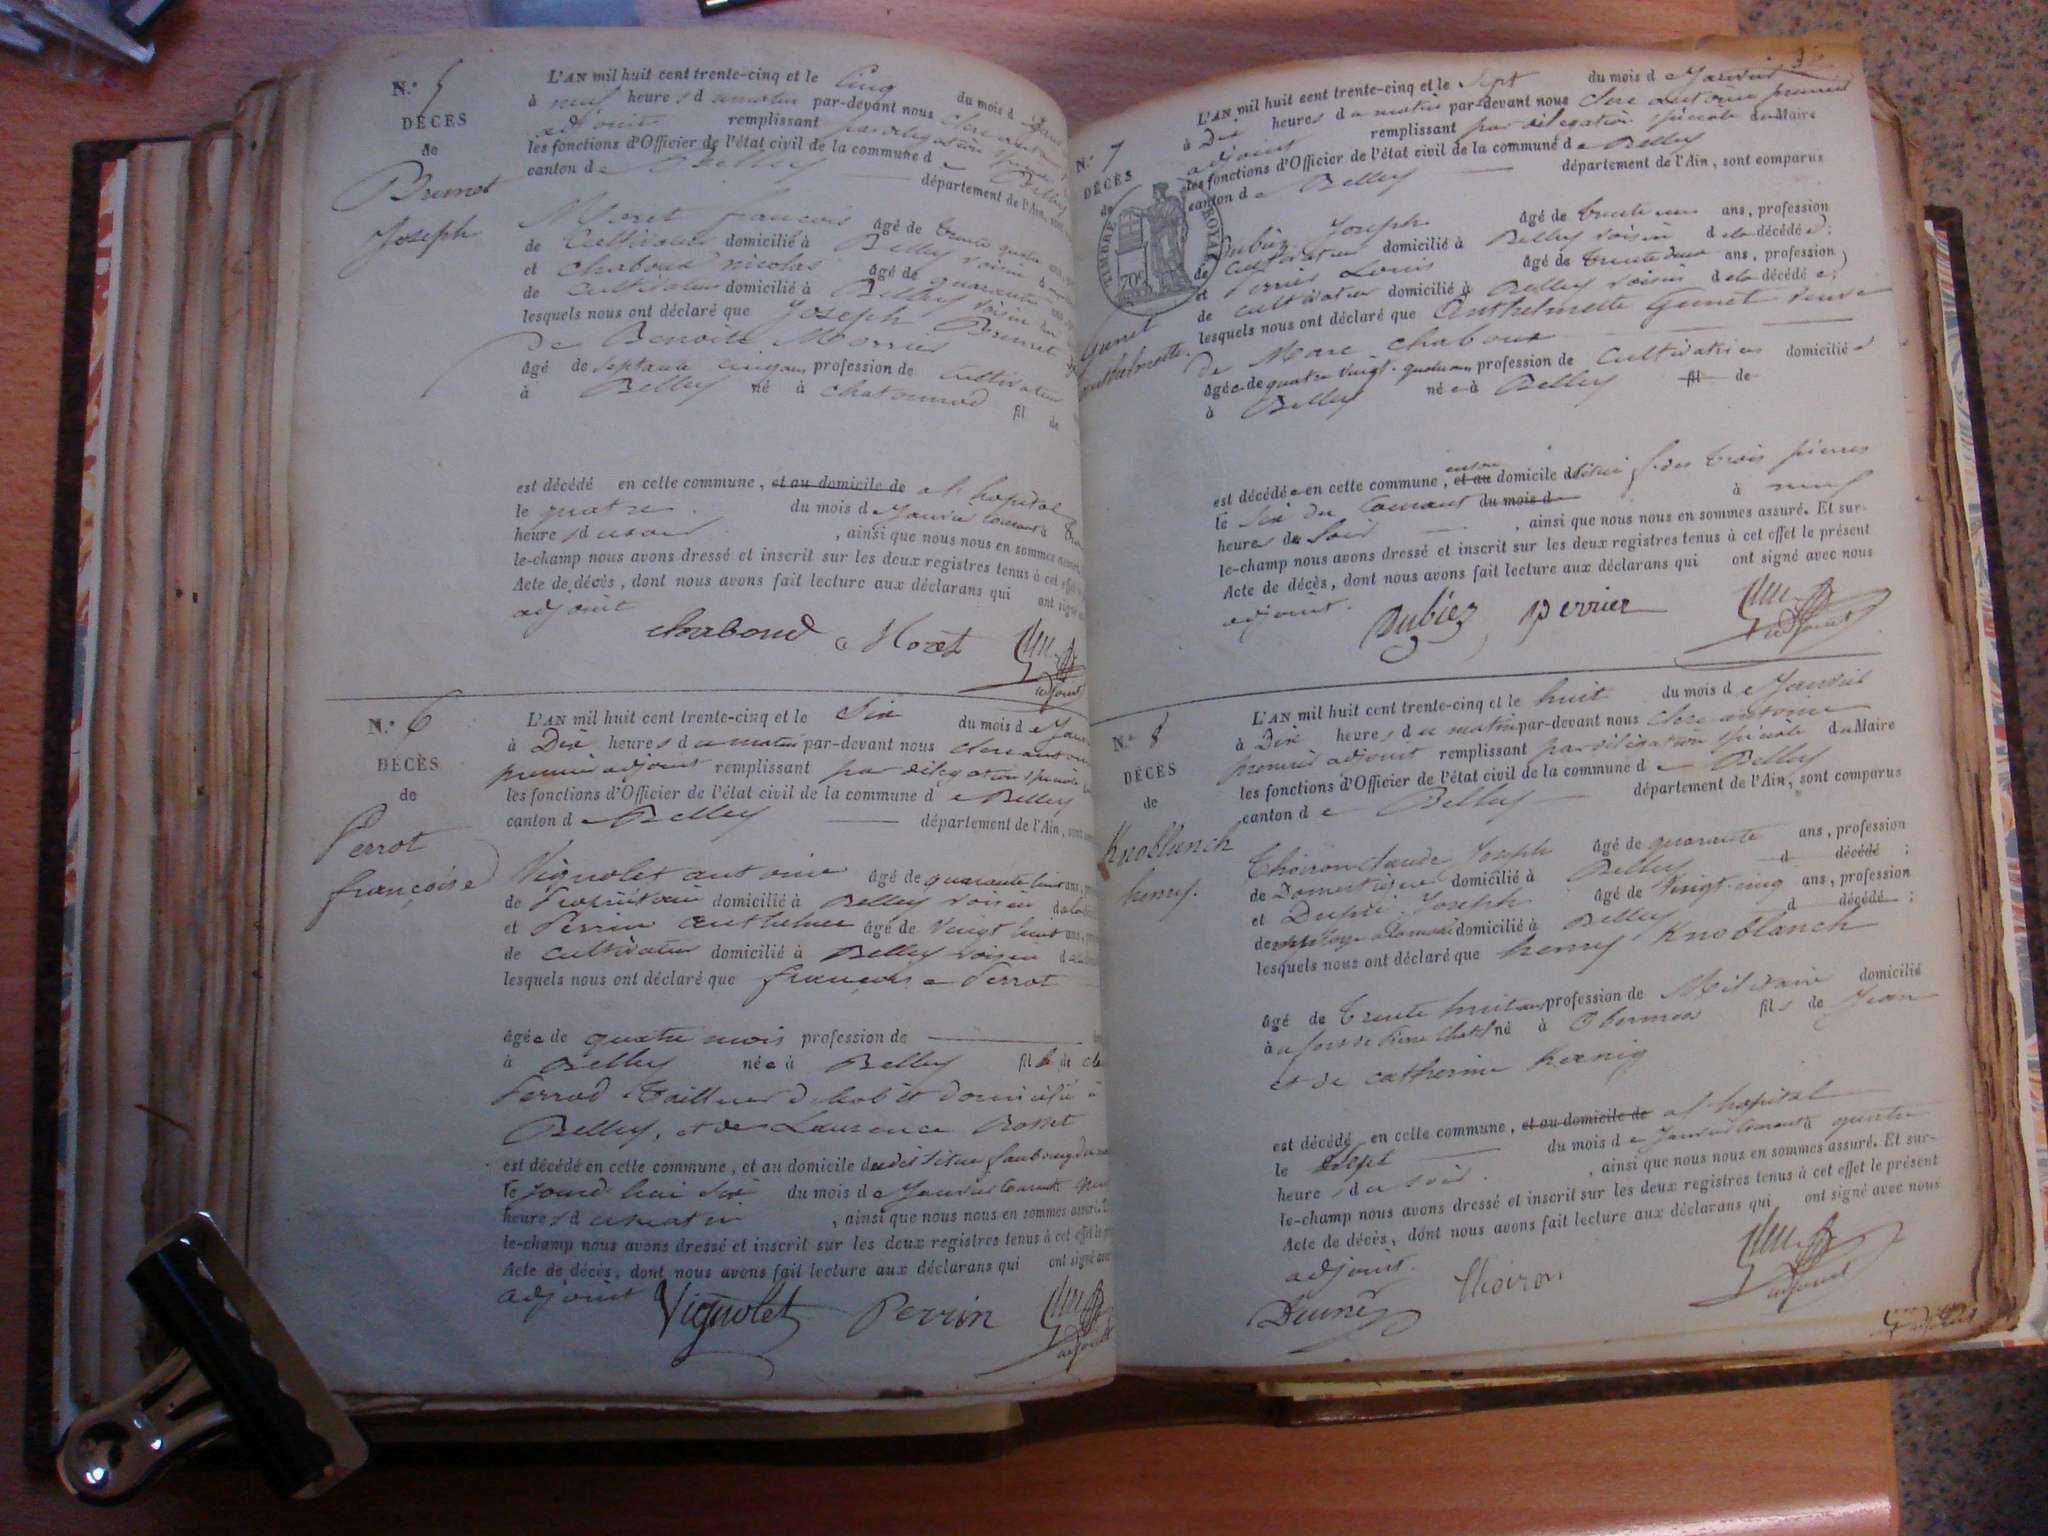 N.° 5
DÉCÈS
de
Brunet
Joseph
L'AN mil huit cent trente-cinq et le Cinq du mois d
à neuf heures du matin par-devant nous Clerc
adjoint remplissant par délégation
les fonctions d'Officier de l'état civil de la commune de Belley
canton de Belley département de l'Ain, sont
Moret françois âgé de trente quatre
de Cultivateur domicilié à Belley voisin
et chaboud nicolas âgé de quarante
de Cultivateur domicilié à Belley voisin
lesquels nous ont déclaré que Joseph Brunet
de Benoite
âgé de septante cinq ans profession de Cultivateur
à Belley né à chatonnod fil de
est décédé en cette commune, et au domicile de a l'hopital
le quatre du mois de Janvier courant à
heures du soir, ainsi que nous nous en sommes assuré.
le-champ nous avons dressé et inscrit sur les deux registres tenus à cet effet
Acte de décès, dont nous avons fait lecture aux déclarans qui ont signé
adjoint
chaboud Moret
adjoint
N.° 6
DÉCÈS
de
Perrot
françoise
L'AN mil huit cent trente-cinq et le Six du mois de
à Dix heures du matin par-devant nous Clerc antoine
premier adjoint remplissant par délégation spéciale
les fonctions d'Officier de l'état civil de la commune de Belley
canton de Belley département de l'Ain,
Vignolet antoine âgé de quarante huit ans,
de Propriétaire domicilié à Belley voisin
et Perrin anthelme âgé de vingt huit ans,
de cultivateur domicilié à Belley voisin
lesquels nous ont déclaré que françoise Perrot
âgée de quatre mois profession de
à Belley née à Belley fille de
Perrod Tailleur d'habit domicilié à
Belley, et de Laurence Rosset
est décédé en cette commune, et au domicile de situé faubourg
le jourd'hui Six du mois de Janvier courant
heures du matin, ainsi que nous nous en sommes assuré.
le-champ nous avons dressé et inscrit sur les deux registres tenus à cet effet le
Acte de décès, dont nous avons fait lecture aux déclarans qui ont signé
adjoint
Vignolet Perrin
adjoint
N.° 7
DÉCÈS
de
TIMBRE ROYAL
70
Gunet
L'AN mil huit cent trente-cinq et le Sept du mois de Janvier
à Dix heures du matin par-devant nous Clerc antoine premier
adjoint remplissant par délégation spéciale du Maire
les fonctions d'Officier de l'état civil de la commune de Belley
canton de Belley département de l'Ain, sont comparus
Dubiez Joseph âgé de trente ans, profession
de Cultivateur domicilié à Belley voisin de la décédée;
et Perrier Louis âgé de trente deux ans, profession
de cultivateur domicilié à Belley voisin de la décédée;
lesquels nous ont déclaré que Anthelmette Gunet veuve
de Marc chaboux
âgée de quatre vingt quatre ans profession de Cultivatrice domiciliée
à Belley née à Belley fil de
est décédée en cette commune, et au domicile situé f. des trois pierres
le Six du courant du mois d à neuf
heures du Soir, ainsi que nous nous en sommes assuré. Et sur-
le-champ nous avons dressé et inscrit sur les deux registres tenus à cet effet le présent
Acte de décès, dont nous avons fait lecture aux déclarans qui ont signé avec nous
adjoint.
Dubiez Perrier
adjoint
N.° 8
DÉCÈS
de
Knoblanch
henry.
L'AN mil huit cent trente-cinq et le huit du mois de Janvier
à Dix heures du matin par-devant nous Clerc antoine
premier adjoint remplissant par délégation spéciale du Maire
les fonctions d'Officier de l'état civil de la commune de Belley
canton de Belley département de l'Ain, sont comparus
Thoiron claude Joseph âgé de quarante ans, profession
de Domestique domicilié à Belley d décédé;
et Joseph âgé de vingt-cinq ans, profession
de domicilié à Belley d décédé;
lesquels nous ont déclaré que henry Knoblanch
âgé de trente huit ans profession de Militaire domicilié
au fort de Pierre Chatel né à fils de Jean
et de catherine Kœnig
est décédé en cette commune, et au domicile de a l'hopital
le Sept du mois de Janvier courant à quatre
heures du soir., ainsi que nous nous en sommes assuré. Et sur-
le-champ nous avons dressé et inscrit sur les deux registres tenus à cet effet le présent
Acte de décès, dont nous avons fait lecture aux déclarans qui ont signé avec nous
adjoint.
Thoiron
adjoint